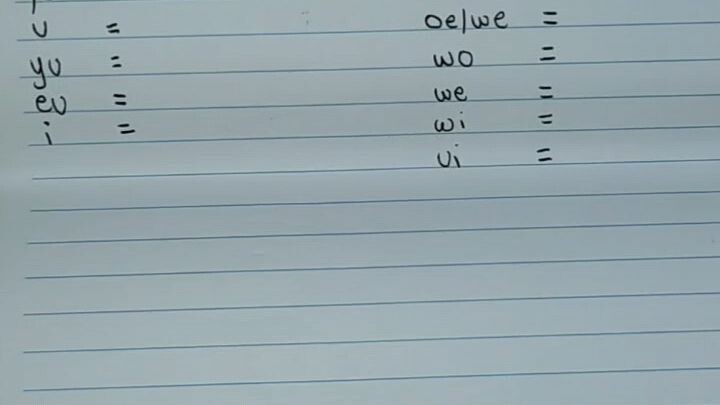 u =
yu =
eu =
i =
oe/we =
wo =
we =
wi =
ui =